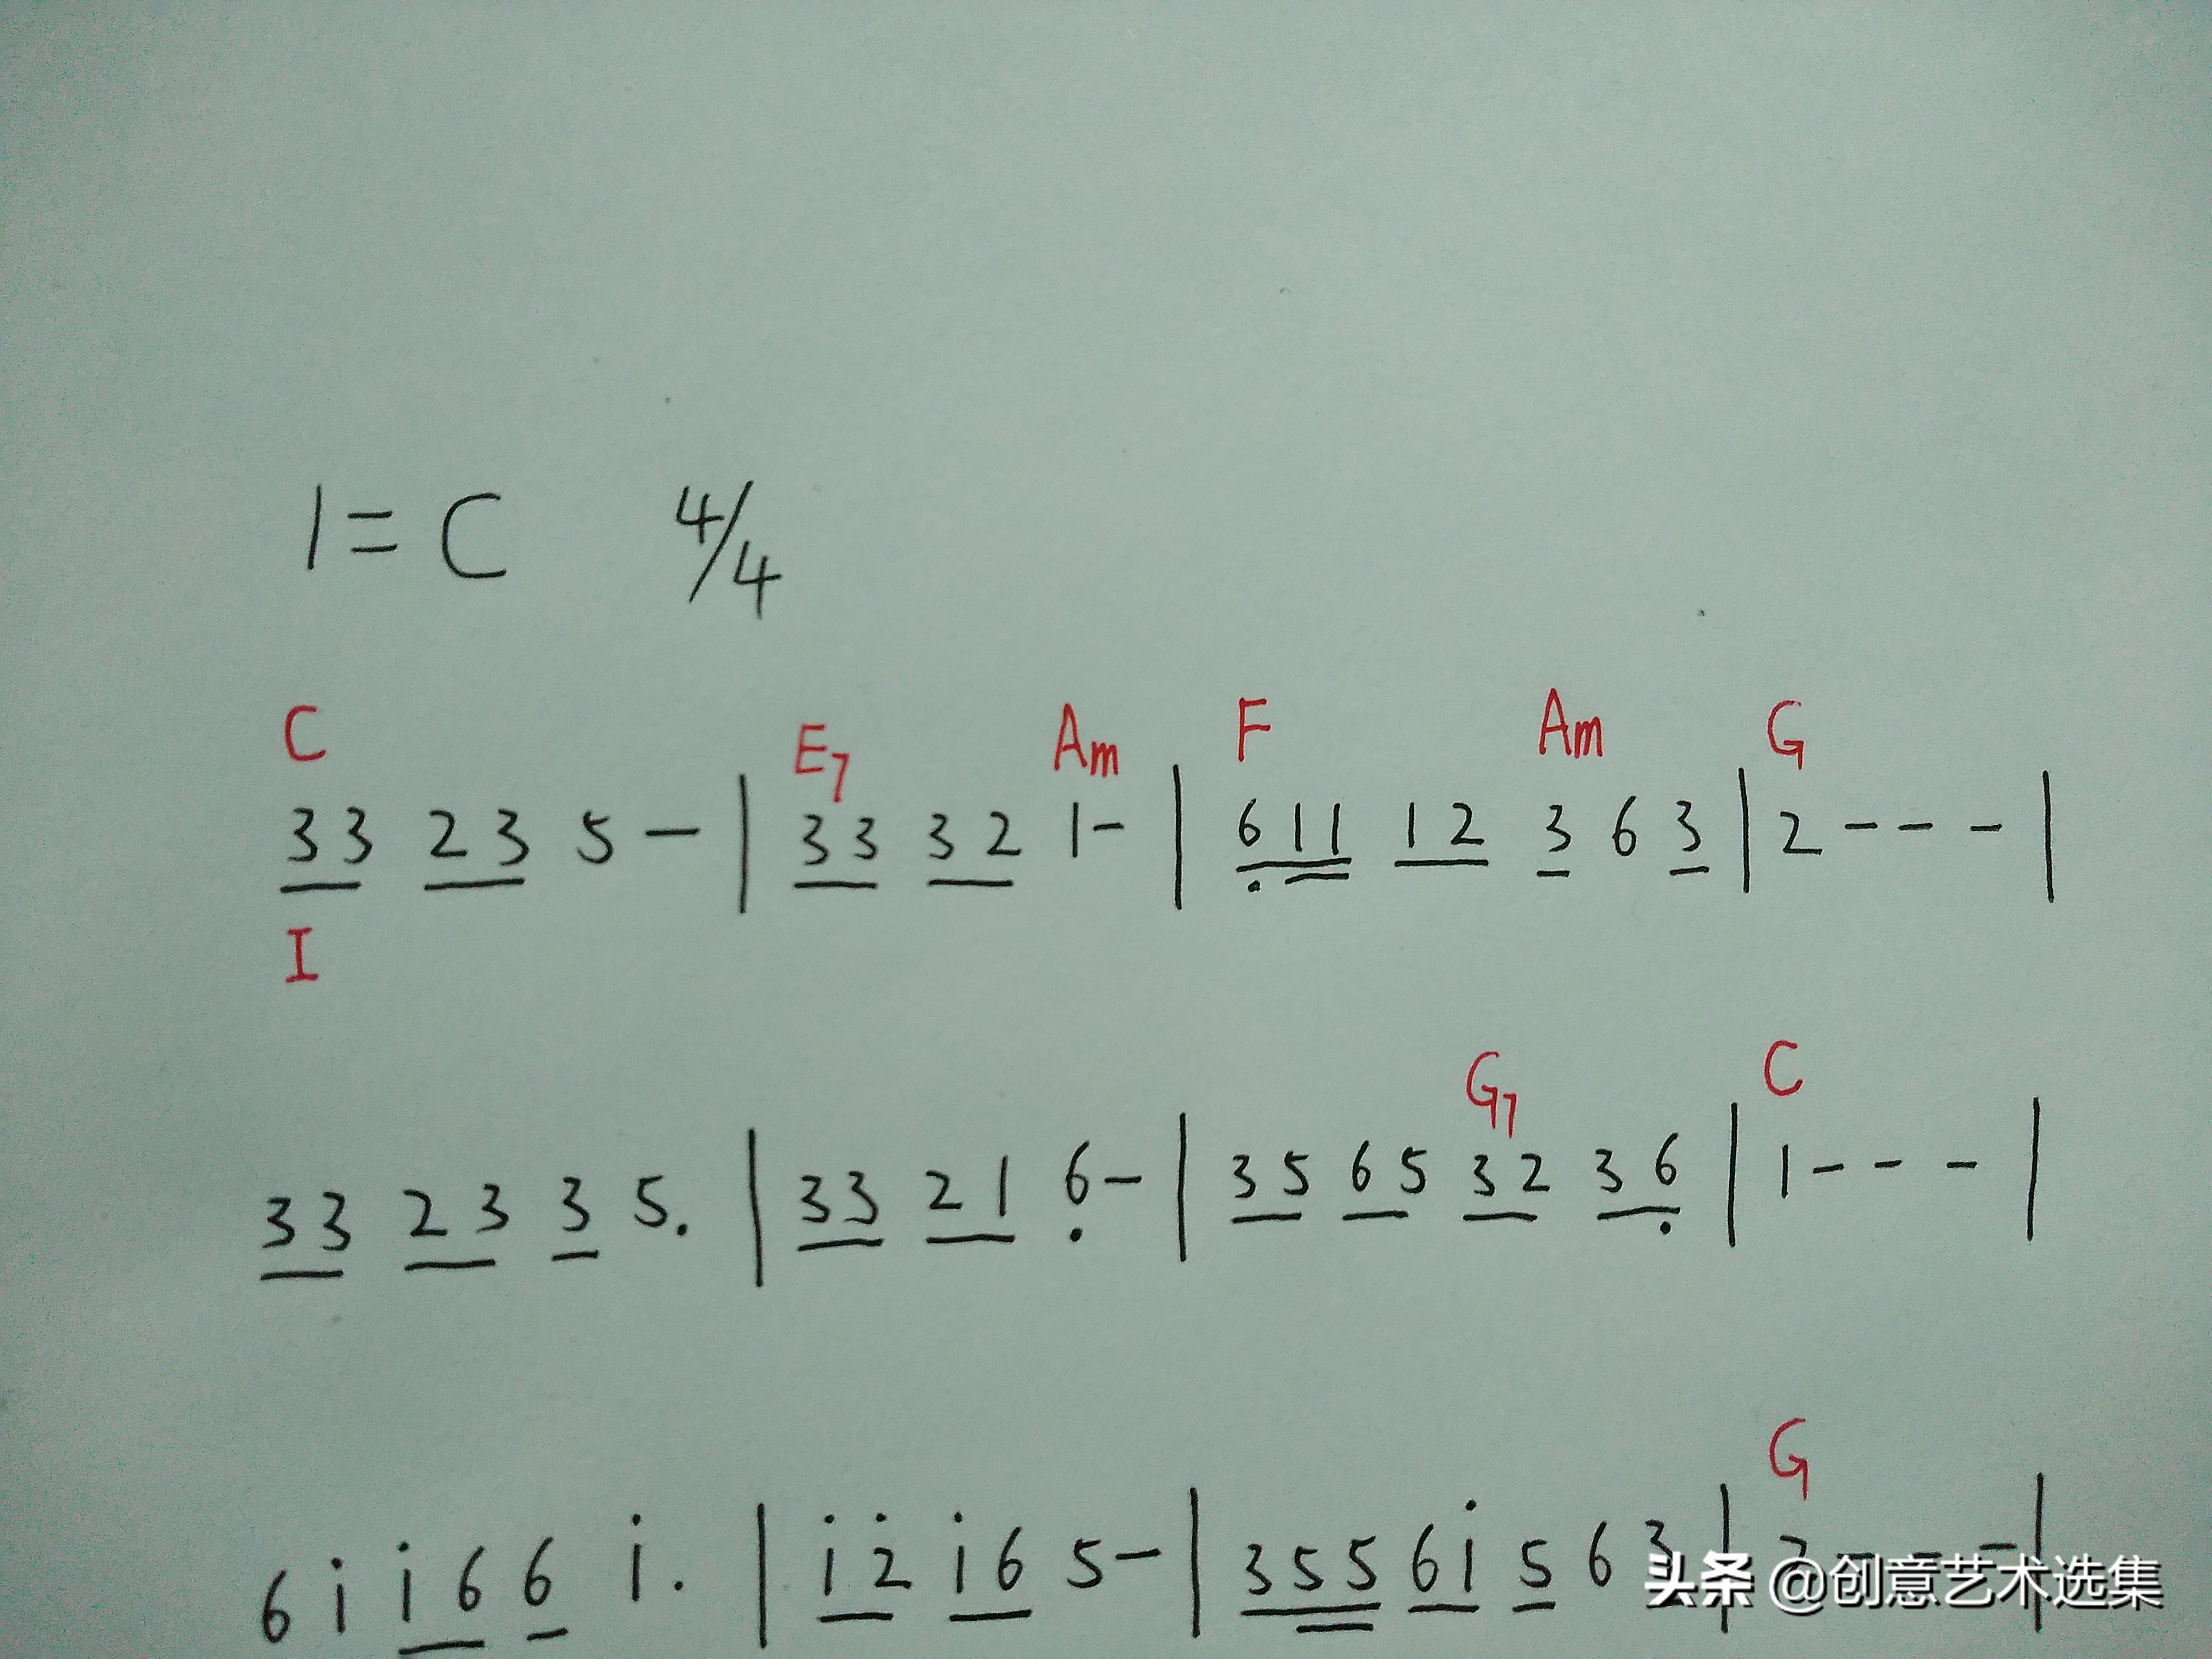 1=C 4/4
C E7 Am F Am G
3 3 2 3 5 – | 3 3 3 2 1 – | 6̣ 1 1 1 2 3 6 3 | 2 – – – |
I
G7 C
3 3 2 3 3 5. | 3 3 2 1 6̣ – | 3 5 6 5 3 2 3 6̣ | 1 – – – |
G
6 i i 6 6 i. | i 2̇ i 6 5 – | 3 5 5 6 i 5 6 3 | – |
头条 @创意艺术选集